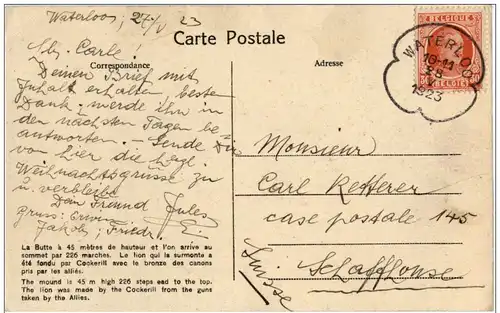 Waterloo, 27/V 23
Carte Postale
Correspondance
Adresse
Lb. Carle!
Deinen Brief mit
Inhalt erhalten, besten
Dank - werde ihn in
den nächsten Tagen be-
antworten. - Sende Dir
von hier die
zu
u. verbleibe
Dein Freund Jules
Gruss: Erwin
Jakob, Friedr.
La Butte à 45 mètres de hauteur et l'on arrive au
sommet par 226 marches. Le lion qui la surmonte a
été fondu par Cockerill avec le bronze des canons
pris par les alliés.
The mound is 45 m high 226 steps ead to the top.
The lion was made by the Cockerill from the guns
taken by the Allies.
BELGIQUE
WATERLOO
10-11
28
V
1923
Monsieur
Carl Ketterer
case postale 145
Schaffhouse
Suisse